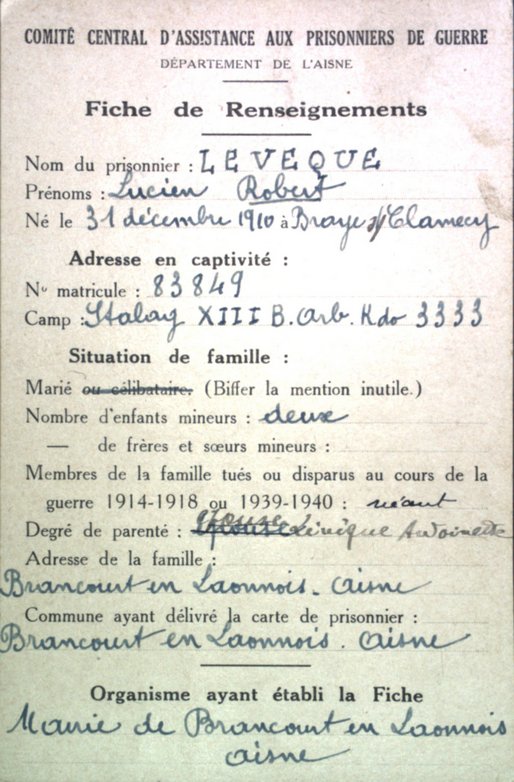 COMITÉ CENTRAL D'ASSISTANCE AUX PRISONNIERS DE GUERRE
DÉPARTEMENT DE L'AISNE
Fiche de Renseignements
Nom du prisonnier : LEVEQUE
Prénoms : Lucien Robert
Né le 31 décembre 1910 à Braye s/ Clamecy
Adresse en captivité :
No matricule : 83849
Camp : Stalag XIII B. Arb. Kdo 3333
Situation de famille :
Marié ou célibataire. (Biffer la mention inutile.)
Nombre d'enfants mineurs : deux
— de frères et sœurs mineurs :
Membres de la famille tués ou disparus au cours de la
guerre 1914-1918 ou 1939-1940 : néant
Degré de parenté : épouse Antoinette
Adresse de la famille :
Brancourt en Laonnois. Aisne
Commune ayant délivré la carte de prisonnier :
Brancourt en Laonnois. Aisne
Organisme ayant établi la Fiche
Mairie de Brancourt en Laonnois
Aisne